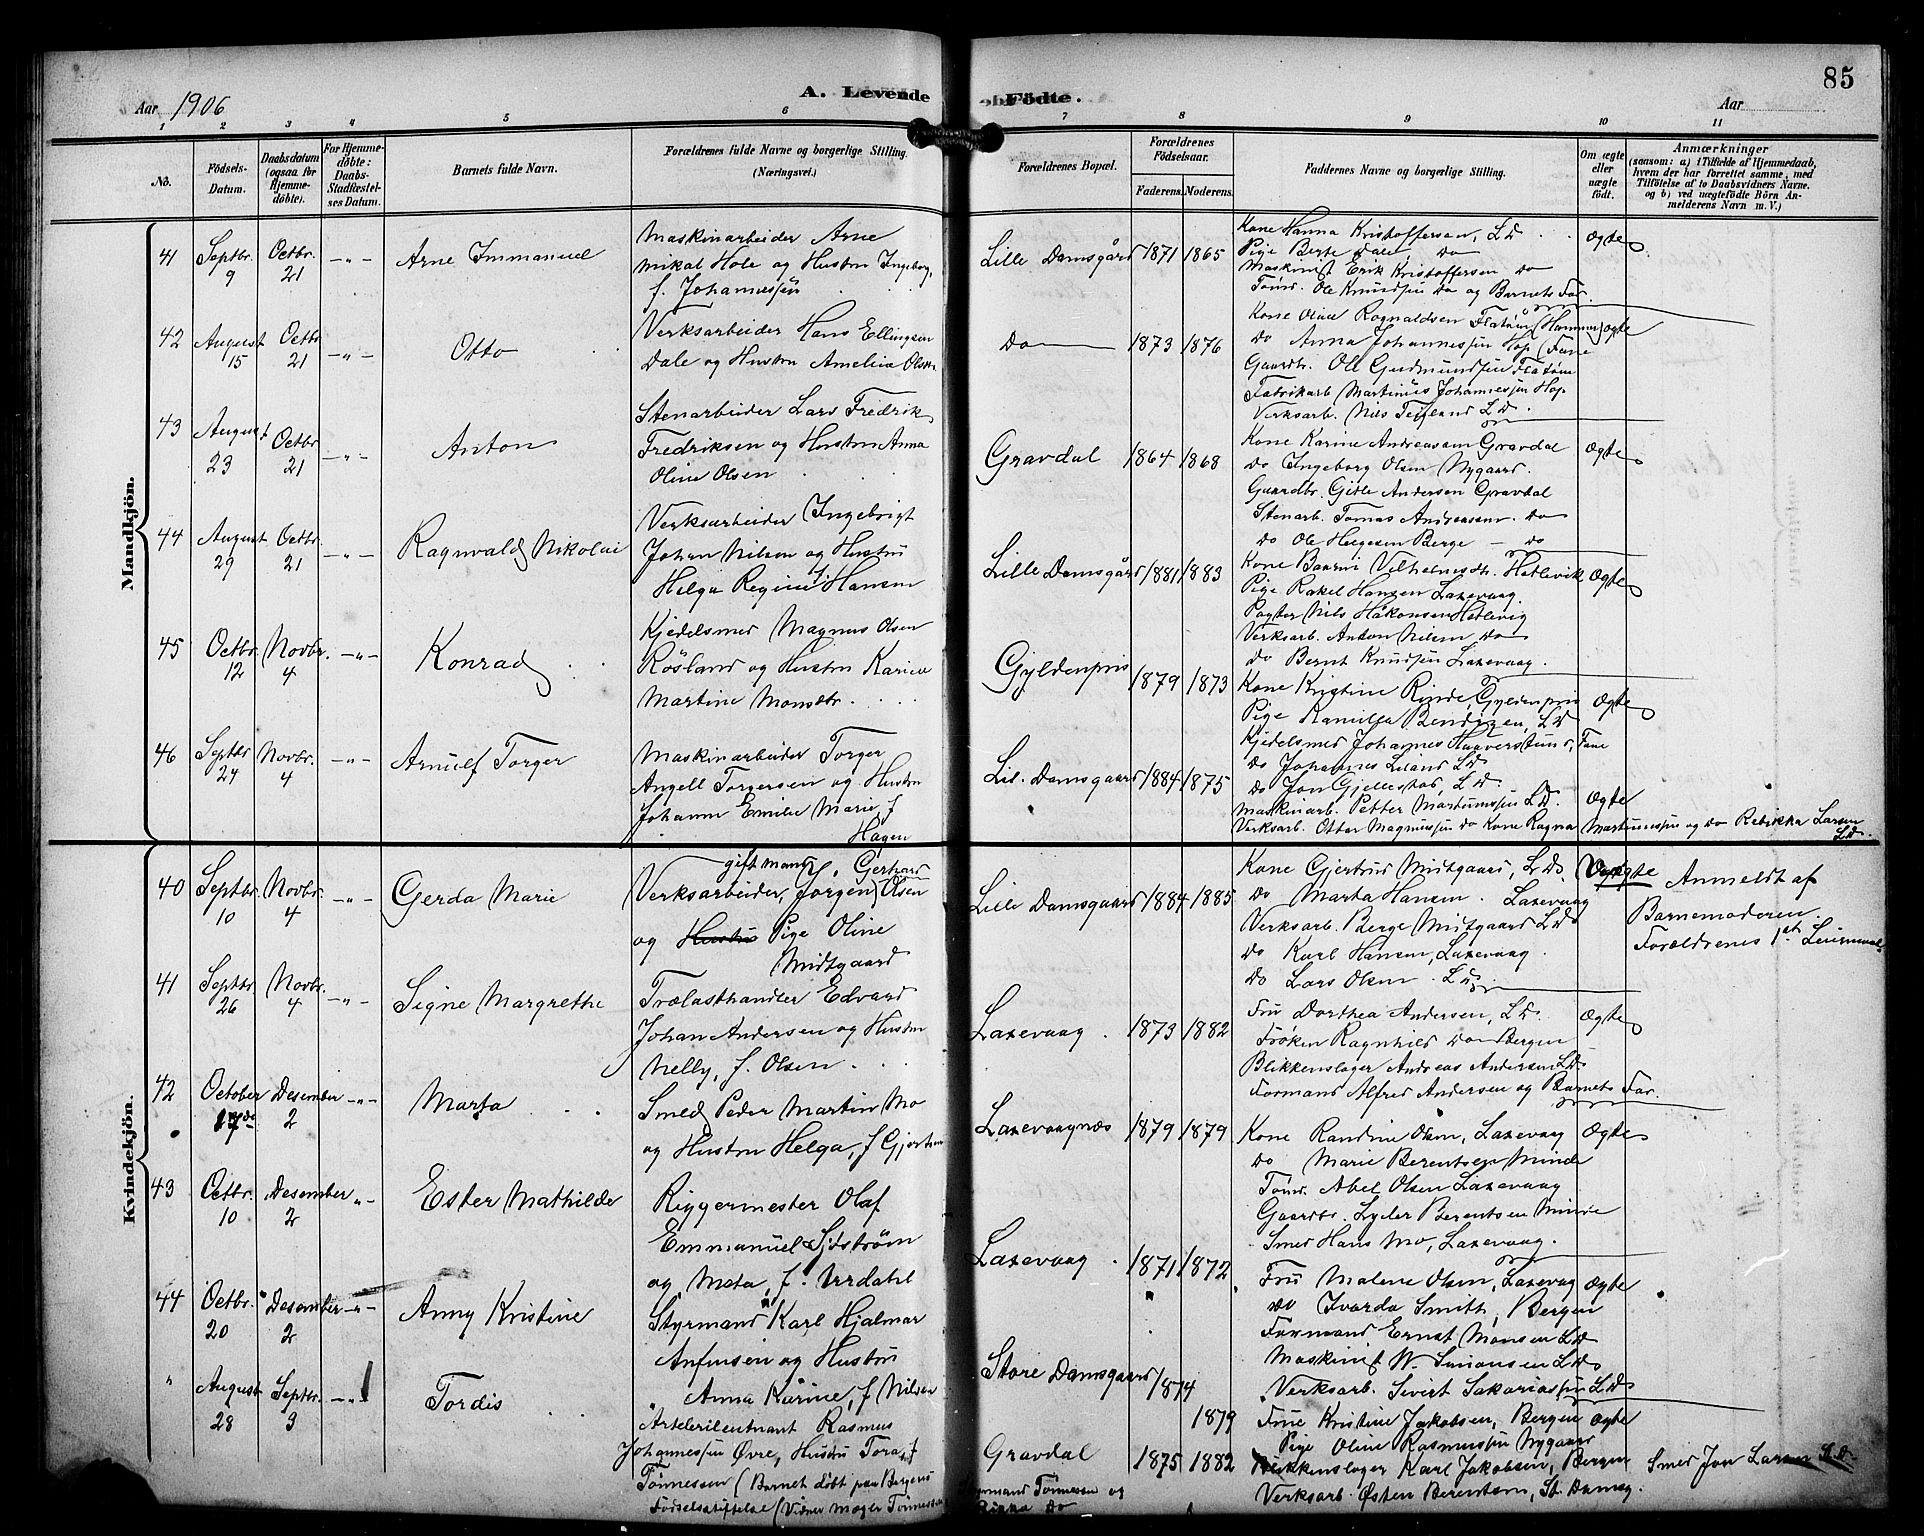 85
Aar 1906
A. Levende
Födte.
Aar
1 2 3 4 5 6 7 8 9 10 11
No.
Födsels-Datum.
Daabsdatum (ogsaa for Hjemme-döbte).
For Hjemme-döbte: Daabs-Stadfæstel-ses Datum.
Barnets fulde Navn.
Forældrenes fulde Navne og borgerlige Stilling.
(Næringsvei.)
Forældrenes Bopæl.
Forældrenes Födselsaar.
Faderens. Moderens.
Faddernes Navne og borgerlige Stilling.
Om ægte eller uægte födt.
Anmærkninger
(saasom: a) i Tilfælde af Hjemmedaab,
hvem der har forrettet samme, med
Tilföielse af to Daabsvidners Navne.
og b) ved uægtefödte Börn An-
melderens Navn m. V.)
Mandkjön.
41 Septbr. 9 Octbr. 21 -"- Arne Immanuel
Maskinarbeider Arne
Mikal Hole og Hustru Ingeborg,
f. Johannessen
Lille Damsgård 1871 1865
Kone Hanna Kristoffersen, L.D.
Pige Berte Dale, Do
Maskinist Erik Kristoffersen Do
Tömr. Ole Knudsen Do og Barnets Far.
Ægte
42 August 15 Octbr 21 -"- Otto
Verksarbeider Hans Ellingsen
Dale og Hustru Amelia Olsen
Do 1873 1876
Kone Oline Ragnaldsen Flatöm (Hammer)
Do Anna Johannessen Hop (Fane
Gaardbr. Ole Gudmundsen Flatöm
Fabrikarb Martinus Johannessen Hop
Verksarb. Nils Teigland L.D.
Ægte
43 August 23 Octbr 21 -"- Anton
Stenarbeider Lars Fredrik
Fredriksen og Hustru Anna
Oline Olsen
Gravdal 1864 1868
Kone Karine Andreassen Gravdal
Do Ingeborg Olsen Nygaard.
Gaardbr. Gitle Andersen Gravdal
Stenarb. Tomas Andreassen Do
Do Ole Helgesen Berge - Do
Ægte
44 August 29 Octbr. 21 -"- Ragnvald Nikolai
Verksarbeider Ingebrigt
Johan Nilsen og Hustru
Helga Regine Hansen
Lille Damsgård 1881 1883
Kone Vilhelmsdtr. Hetlevik
Pige Rakel Hansen Laxevaag.
Nils Håkonsen Hetlevig
Verksarb. Anton Nilsen Do
Do Bernt Knudsen Laxevaag.
Ægte
45 Octbr. 12 Novbr. 4 -"- Konrad
Kjedelsmed Magnus Olsen
Rösland og Hustru Karine
Martine Monsdtr.
Gyldenpris 1879 1873
Kone Kristine Rinde, Gyldenpris
Pige Kamilla Bendixen, L.D.
Kjedelsmed Johannes Haaverstun, Fane
Do Johannes Leland L.D.
Do Jon Gjellestad, L.D.
Ægte
46 Septbr 24 Novbr. 4 -"- Arnulf Torger
Maskinarbeider Torger
Angell Torgersen og Hustru
Johanne Emilie Marie, f
Hagen
Lil. Damsgaard 1884 1875
Maskinarb. Petter Martinussen L.D.
Verksarb. Otter Magnussen Do Kone Ragna Martinussen og Do Rebikka Larsen
L.D.
Ægte
Kvindekjön.
40 Septbr. 10 Novbr. 4 -"- Gerda Marie
gift mand Gerhard
Verksarbeider, Jörgen Olsen
og Hustru Pige Oline
Midtgaard
Lille Damsgaard 1884 1885
Kone Gjertrud Midtgaard, L.D.
Do Marta Hansen. Laxevaag
Verksarb. Berge Midtgaard L.D.
Do Karl Hansen, Laxevaag.
Do Lars Olsen. L.D.
Uægte Anmeldt af
Barnemoderen.
Forældrenes 1ste Leiermaal.
41 Septbr. 26 Novbr. 4 -"- Signe Margrethe
Trælasthandler Edvard
Johan Andersen og Hustru
Nelly, f. Olsen
Laxevaag. 1873 1882
Fru Dorthea Andersen, L.D.
Fröken Ragnhild Do Bergen
Blikkenslager Andreas Andersen L.D.
Formand Alfred Andersen og Barnets Far.
Ægte
42 October 17de Desember 2 -"- Marta
Smed Peder Martin Mo
og Hustru Helga, f Gjertsen
Laxevaagnæs 1879 1879
Kone Randine Olsen, Laxevaag
Do Marie Berentsen Minde
Tömr. Abel Olsen Laxevaag
Gaardbr. Lyder Berentsen Minde
Smed Hans Mo, Laxevaag.
Ægte
43 Octbr. 10 Desember 2 "- Ester Mathilde
Riggermester Olaf
Emmanuel Sjöström
og Meta, f. Urdahl
Laxevaag 1871 1872
Fru Malene Olsen, Laxevaag
Do Ivarda Smith, Bergen
Formand Ernst Monsen L.D.
Maskinist W. Simonsen L.D.
Verksarb. Sivert Sakariassen L.D.
Ægte
44 Octbr. 20 Desember 2 -"- Anny Kristine
Styrmand Karl Hjalmar
Anfinsen og Hustru
Anna Karine, f Nilsen
Store Damsgaard 1874
1879
Frue Kristine Jakobsen, Bergen
Pige Oline Rasmussen Nygaard
Blikkenslager Karl Jakobsen, Bergen
Verksarb. Østen Berentsen, St. Damsg.
Ægte
Smed Jon Larsen L.D.
" August 28 Septbr. 3 -"- Tordis
Artelerilieutnant Rasmus
Johannessen Øvre, Hustru Tora, f
Tönnessen (Barnet döbt paa Bergens
Födselsstiftelse (Vidner Mægler Tönnessen
Gravdal 1875 1882
Tönnessen og
Do